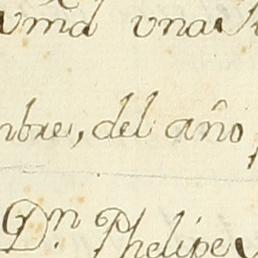 vmd una
mbre, del año
Dn Phelipe